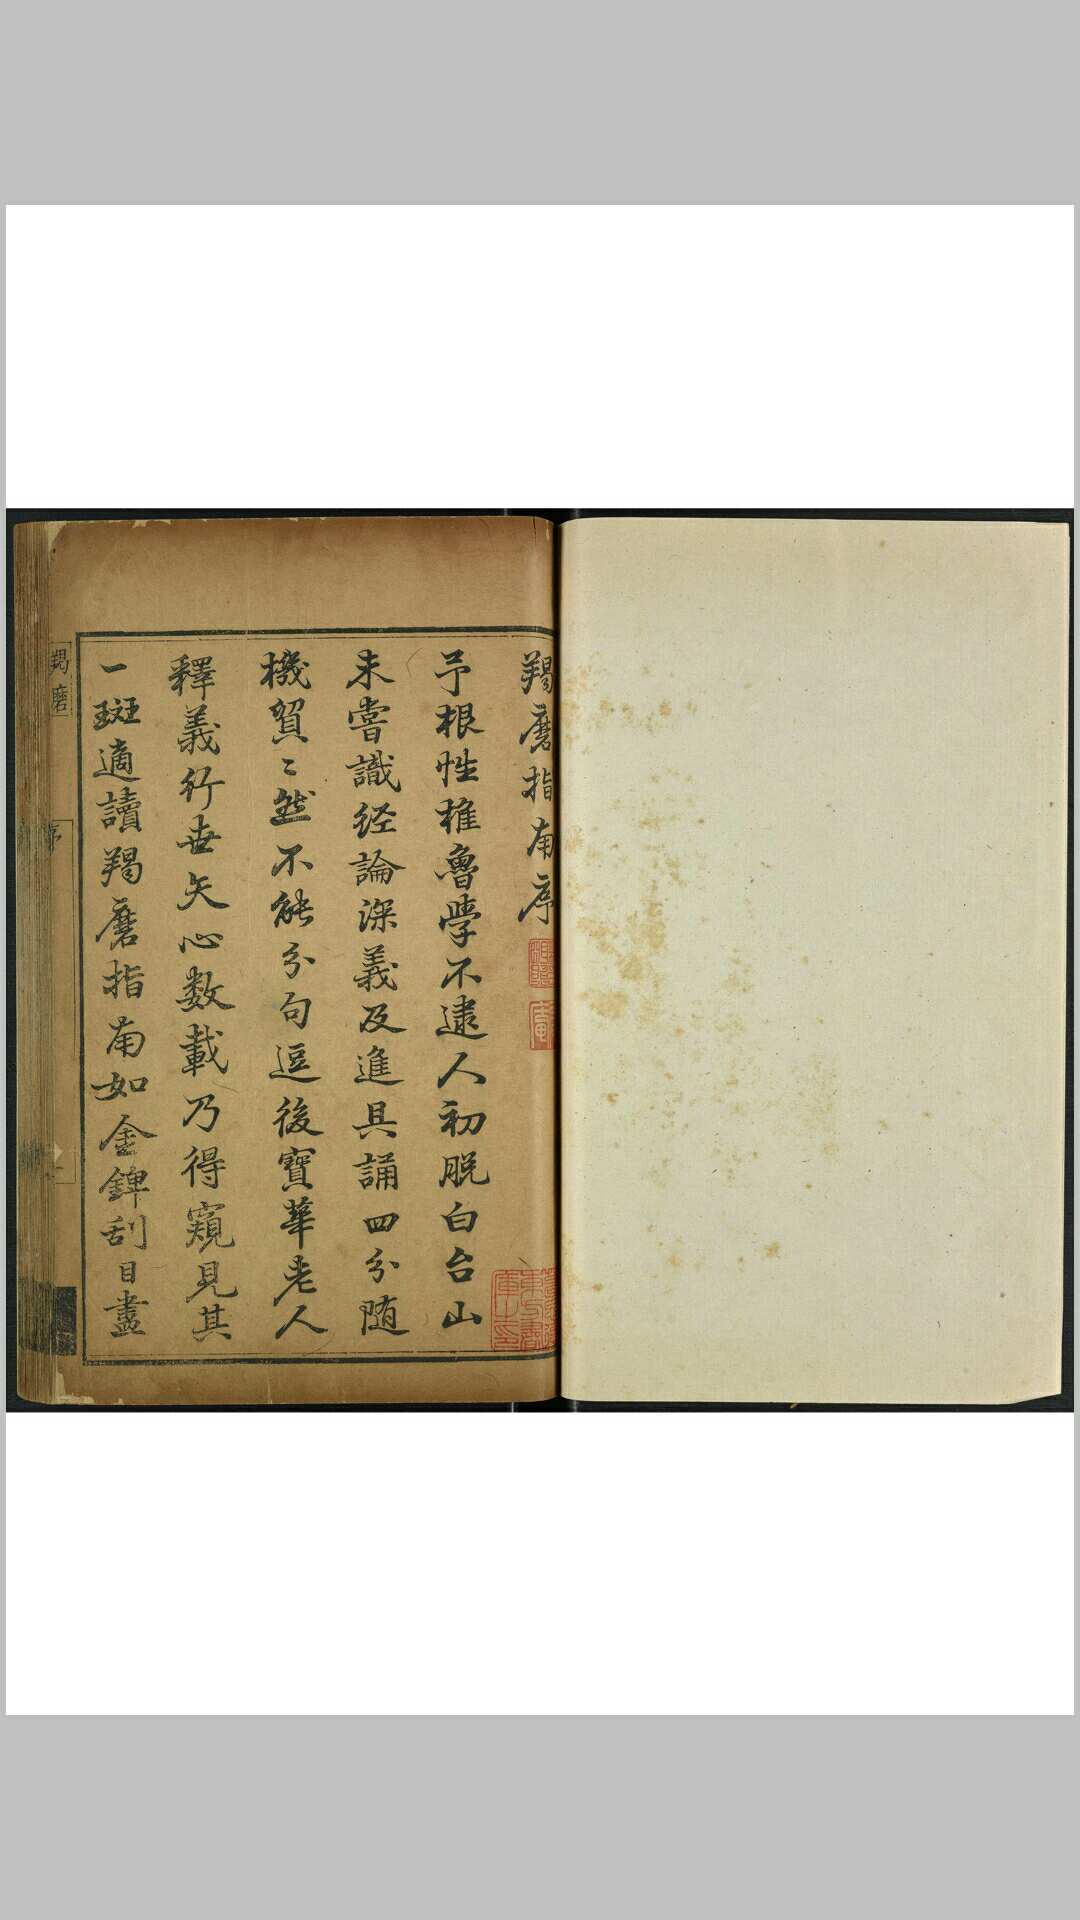 羯磨指南序
予根性椎魯學不逮人初脫白台山
未嘗識经論深義及進具誦四分随
機貿〻然不能分句逗後寶華老人
釋義行世矢心数載乃得窺見其
一斑適讀羯磨指南如金錍刮目盡
羯磨
序